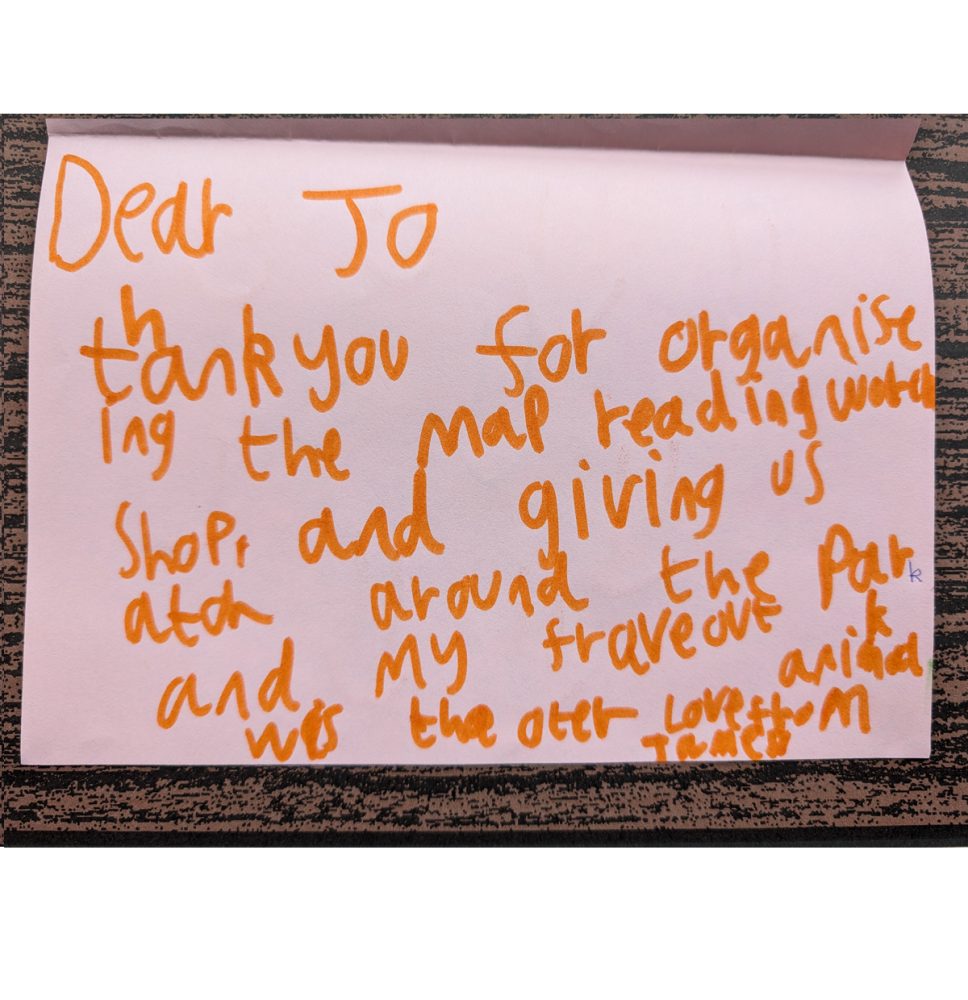 Dear Jo
thankyou for organise
ing the map reading work
shop, and giving us
around the park
and my fraveout animal
wes the oter Love from
James